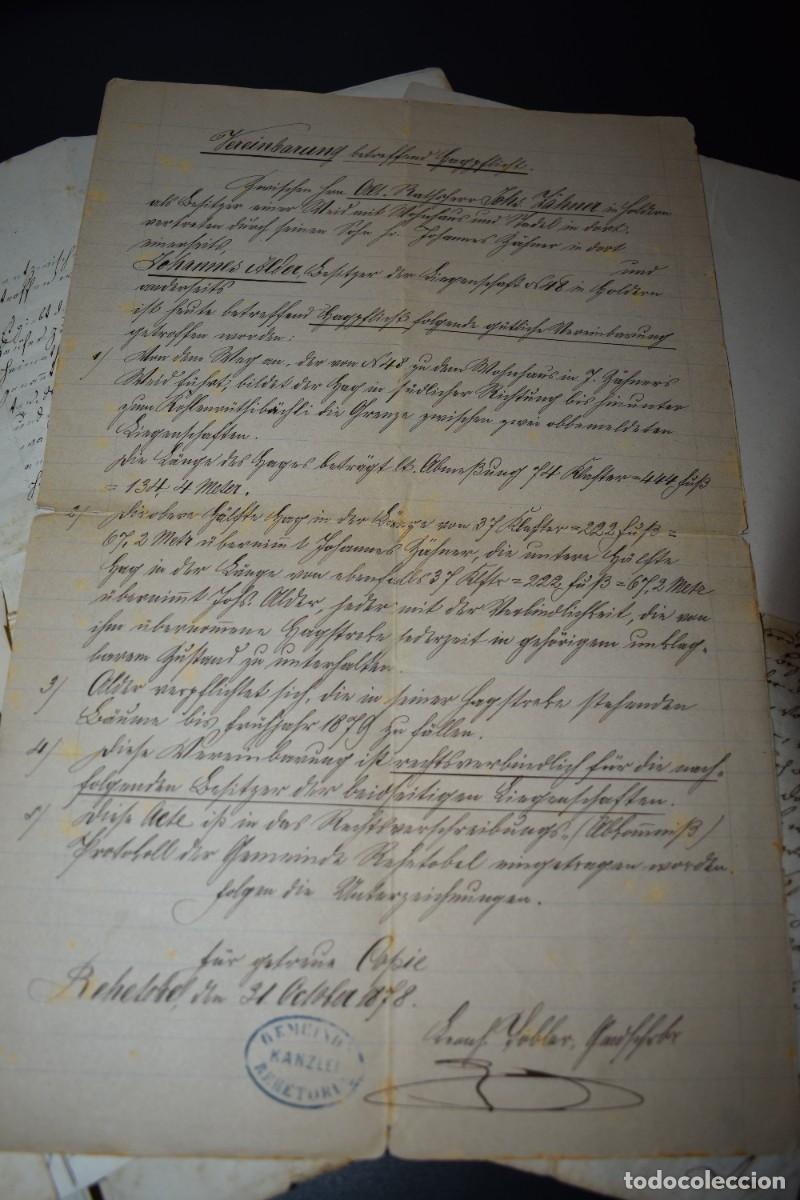 Vereinbarung betreffend Hagpflicht.
Zwischen Hrn. Alt. Rathsherr Johs. Zähner in Holdern
als Besitzer einer Weid mit Wohnhaus und Stadel in dort,
vertreten durch seinen Sohn Hr. Johannes Zähner in dort
einerseits, und
Johannes Alder, Besitzer der Liegenschaft N 48 in Holdern
anderseits
ist heute betreffend Hagpflicht folgende gütliche Vereinbarung
getroffen worden:
1/ Von dem Weg an, der von N 48 zu dem Wohnhaus in J. Zähner's
Weid führt, bildet der Hag in südlicher Richtung bis hinunter
zum Kohlenrüthibächli die Grenze zwischen zwei obbemeldeten
Liegenschaften.
Die Länge des Hages beträgt lt. Abmeßung 74 Klafter = 444 Fuß
= 134, 4 Meter.
2/ Die obere Hälfte Hag in der Länge von 37 Klafter = 222 Fuß =
67, 2 Mete übernimmt Johannes Zähner, die untere Hälfte
Hag in der Länge von ebenfalls 37 Klftr = 222 Fuß = 67, 2 Mete
übernimmt Johs. Alder, jeder mit der Verbindlichkeit, die von
ihm übernommene Hagstreke jederzeit in gehörigem unklag-
barem Zustand zu unterhalten.
3/ Alder verpflichtet sich, die in seiner Hagstreke stehenden
Bäume bis Frühjahr 1879 zu fällen.
4/ Diese Vereinbarung ist rechtsverbindlich für die nach-
folgenden Besitzer der beidseitigen Liegenschaften.
5/ Diese Acte ist in das Rechtsverschreibungs-/Abkommniß/
Protokoll der Gemeinde Rehetobel eingetragen worden.
folgen die Unterzeichnungen.
für getreue Copie
Rehetobel, den 31 October 1878.
Tobler, Gmdschrbr
GEMEINDE
KANZLEI
REHETOBEL
todocoleccion
todocoleccion.net